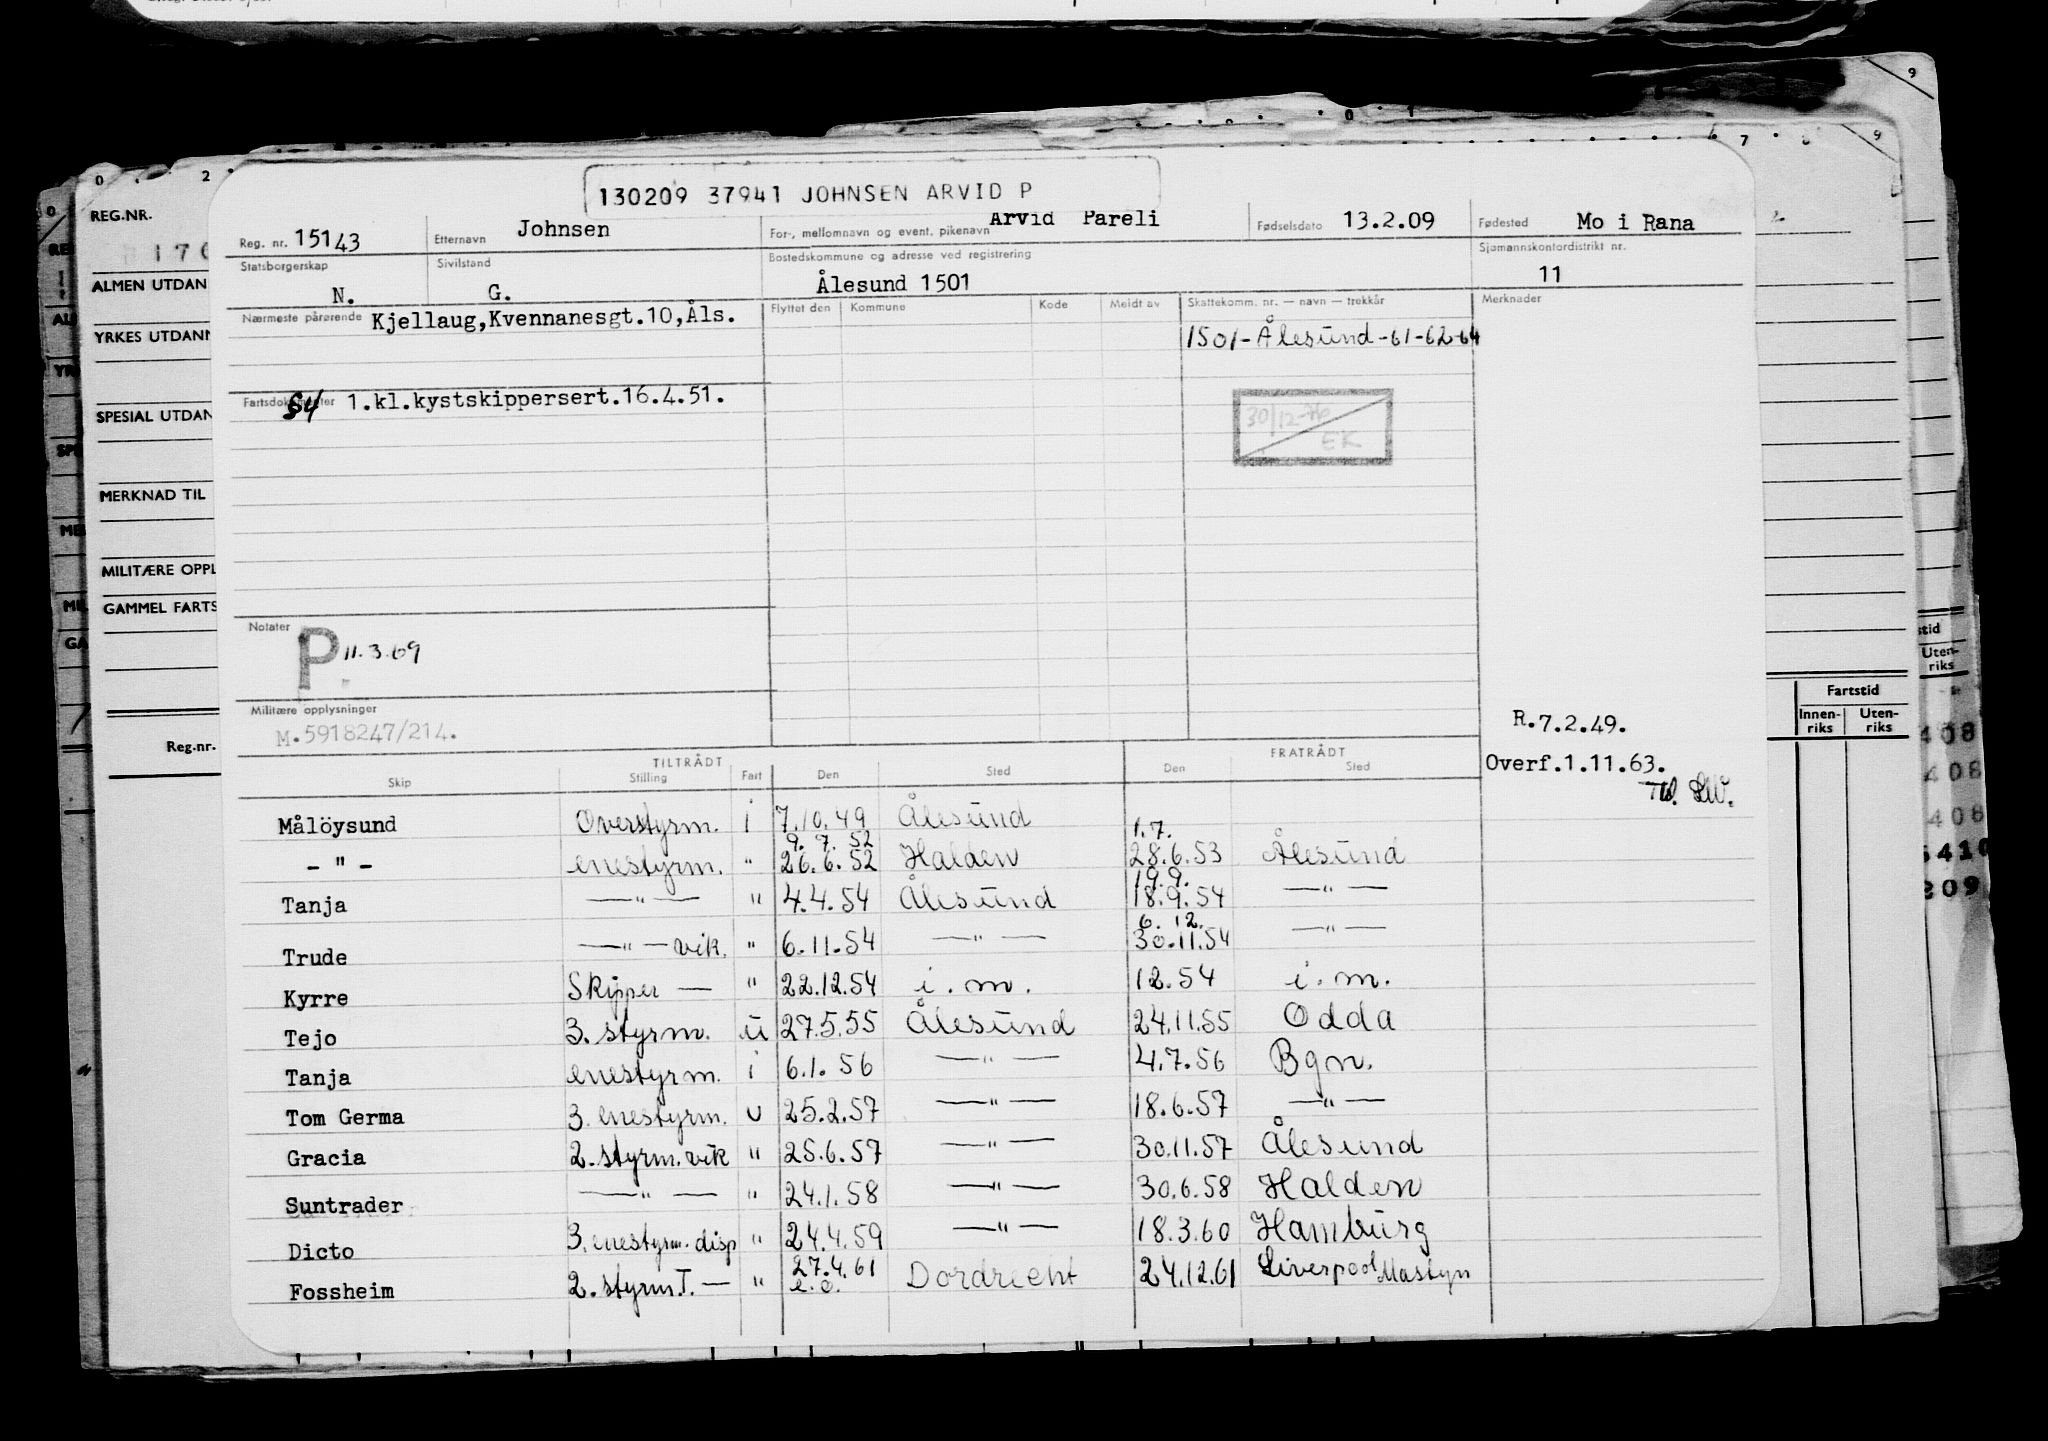 0 2 7 8 9
130209 37941 JOHNSEN ARVID P
REG.NR.
Reg. nr. 15143 Etternavn Johnsen For-, mellomnavn og event. pikenavn Arvid Pareli Fødselsdato 13.2.09 Fødested Mo i Rana
Statsborgerskap N. Sivilstand G. Bostedskommune og adresse ved registrering Ålesund 1501 Sjømannskontordistrikt nr. 11
ALMEN UTDAN
Nærmeste pårørende Kjellaug,Kvennanesgt.10,Åls. Flyttet den Kommune Kode Meldt av Skattekomm. nr. — navn — trekkår Merknader
YRKES UTDANN
1501-Ålesund-61-62-64
Fartsdokumenter S4 1.kl.kystskippersert.16.4.51.
SPESIAL UTDAN
30/12-
EK
MERKNAD TIL
MILITÆRE OPPL
GAMMEL FARTS
Notater P 11.3.69
Militære opplysninger
M.5918247/214.
R.7.2.49.
Overf.1.11.63.
Reg.nr.
Fartstid
Innen-riks Uten-riks
TILTRÅDT FRATRÅDT
Skip Stilling Fart Den Sted Den Sted
Målöysund Overstyrm. i 7.10.49 Ålesund
9.7.52 1.7.
- " - enestyrm. " 26.6.52 Halden 28.6.53 Ålesund
19.9.
Tanja —"— " 4.4.54 Ålesund 18.9.54 —"—
6.12.
Trude —"— vik. " 6.11.54 —"— 30.11.54 —"—
Kyrre Skipper — " 22.12.54 i.m. 12.54 i.m.
Tejo 3. styrm. u 27.5.55 Ålesund 24.11.55 Odda
Tanja enestyrm. i 6.1.56 —"— 4.7.56 Bgn.
Tom Germa 3. enestyrm. u 25.2.57 —"— 18.6.57 —"—
Gracia 2. styrm. vik " 25.6.57 —"— 30.11.57 Ålesund
Suntrader —"— " 24.1.58 —"— 30.6.58 Halden
Dicto 3. enestyrm. disp " 24.4.59 —"— 18.3.60 Hamburg
27.4.61
Fossheim 2. styrm. T. — " e.o. Dordrecht 24.12.61 Liverpool Mastyn